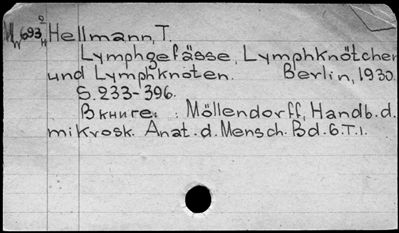 693 Hellmann, T.
Lymphgefässe, Lymphknötchen
und Lymphknoten. Berlin, 1930.
S. 233-396.
В книге: Möllendorff, Handb. d.
mikrosk. Anat. d. Mensch. Bd. 6. T. 1.